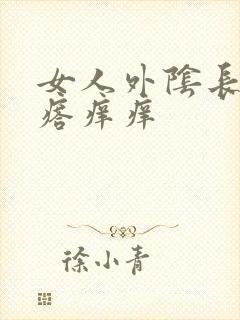 女人外陰長
痦痒痒
徐小青